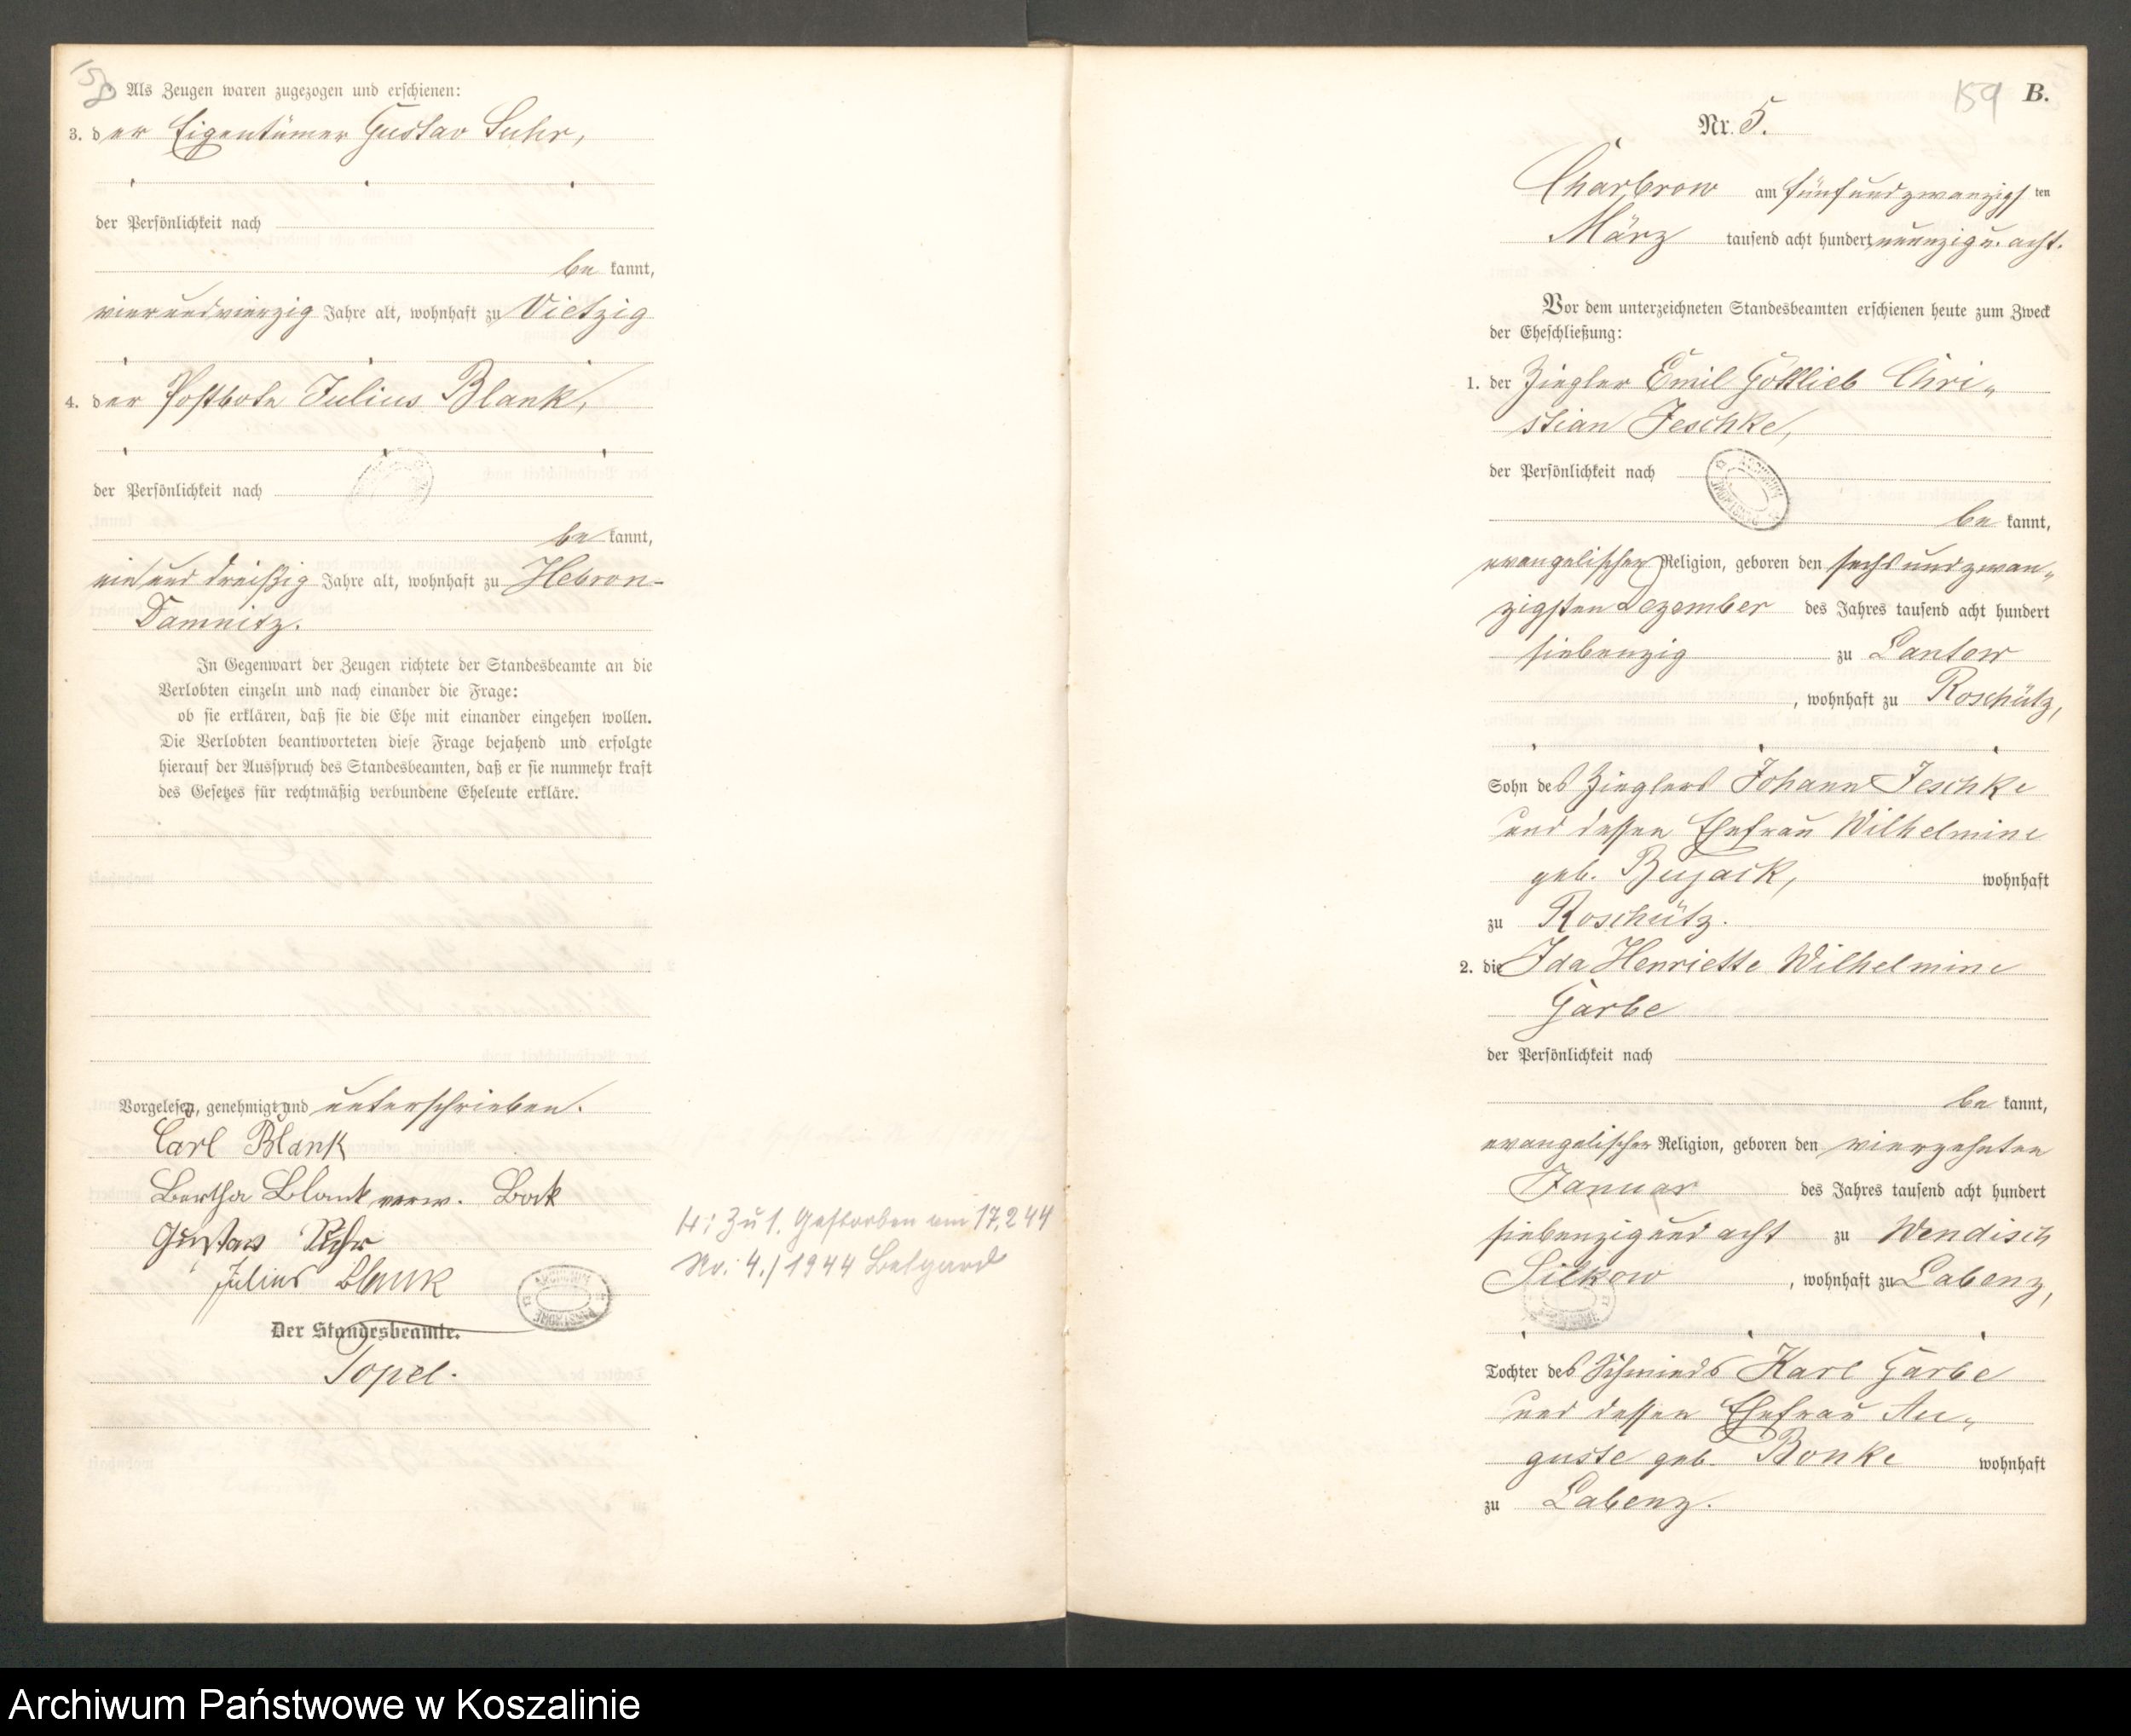 158
Als Zeugen waren zugezogen und erschienen:
3. der Eigentümer Gustav Suhr,
der Persönlichkeit nach
be kannt,
vierundvierzig Jahre alt, wohnhaft zu Vietzig
4. der Postbote Julius Blank,
der Persönlichkeit nach
be kannt,
einunddreißig Jahre alt, wohnhaft zu Hebron-
Damnitz.
In Gegenwart der Zeugen richtete der Standesbeamte an die
Verlobten einzeln und nach einander die Frage:
ob sie erklären, daß sie die Ehe mit einander eingehen wollen.
Die Verlobten beantworteten diese Frage bejahend und erfolgte
hierauf der Ausspruch des Standesbeamten, daß er sie nunmehr kraft
des Gesetzes für rechtmäßig verbundene Eheleute erkläre.
Vorgelesen, genehmigt und unterschrieben.
Carl Blank
Bertha Blank verw. Bock
Gustav Suhr
Julius Blank
Der Standesbeamte.
Topel.
H: Zu 1. Gestorben am 17.2 44
Nr. 4./1944 Belgard
159 B.
Nr. 5.
Charbrow am fünfundzwanzigs ten
März tausend acht hundert neunzig u. acht.
Vor dem unterzeichneten Standesbeamten erschienen heute zum Zweck
der Eheschließung:
1. der Ziegler Emil Gottlieb Chri-
stian Jeschke,
der Persönlichkeit nach
be kannt,
evangelischer Religion, geboren den sechsundzwan-
zigsten Dezember des Jahres tausend acht hundert
siebenzig zu Lantow
, wohnhaft zu Roschütz,
Sohn des Zieglers Johann Jeschke
und dessen Ehefrau Wilhelmine
geb. Bujack, wohnhaft
zu Roschütz.
2. die Ida Henriette Wilhelmine
Garbe
der Persönlichkeit nach
be kannt,
evangelischer Religion, geboren den vierzehnten
Januar des Jahres tausend acht hundert
siebenzig und acht zu Wendisch
Silkow , wohnhaft zu Labenz,
Tochter des Schmieds Karl Garbe
und dessen Ehefrau Au-
guste geb. Bonke wohnhaft
zu Labenz.
Archiwum Państwowe w Koszalinie